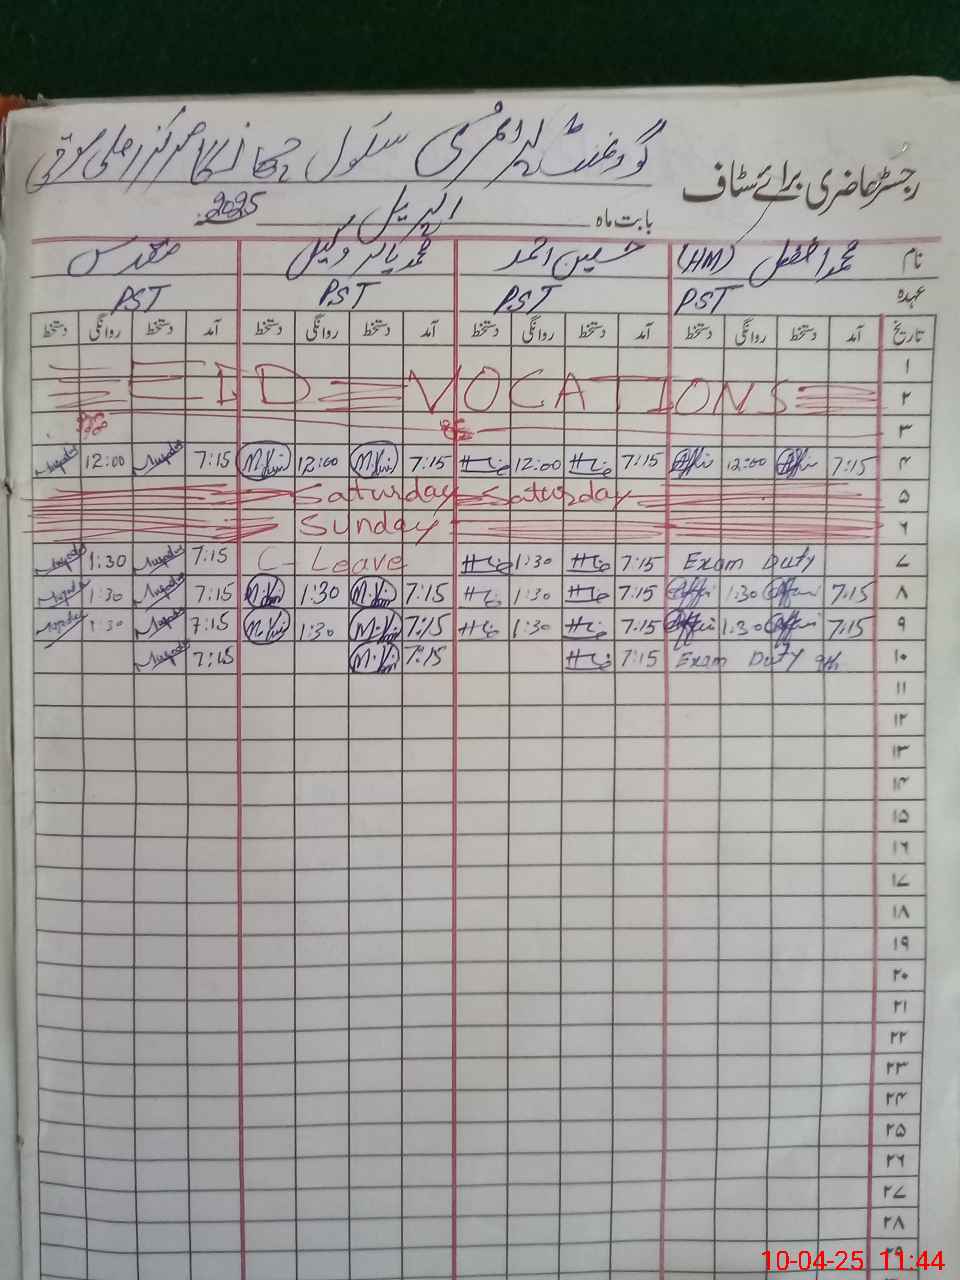 گورنمنٹ پرائمری سکول
رجسٹر حاضری برائے سٹاف
بابت ماہ اپریل 2025
نام محمد افضل (HM) حسین احمد محمد یاسر وکیل مقدس
عہدہ PST PST PST PST
تاریخ آمد دستخط روانگی دستخط آمد دستخط روانگی دستخط آمد دستخط روانگی دستخط آمد دستخط روانگی دستخط
۱
۲ EID VOCATIONS
۳
۴ 7:15 12:00 7:15 12:00 7:15 12:00 7:15 12:00
۵ Saturday Saturday
۶ Sunday
۷ Exam Duty 7:15 1:30 C- Leave 7:15 1:30
۸ 7:15 1:30 7:15 1:30 7:15 1:30 7:15 1:30
۹ 7:15 1:30 7:15 1:30 7:15 1:30 7:15 1:30
۱۰ Exam Duty 9th 7:15 7:15 7:15
۱۱
۱۲
۱۳
۱۴
۱۵
۱۶
۱۷
۱۸
۱۹
۲۰
۲۱
۲۲
۲۳
۲۴
۲۵
۲۶
۲۷
۲۸
۲۹
10-04-25 11:44